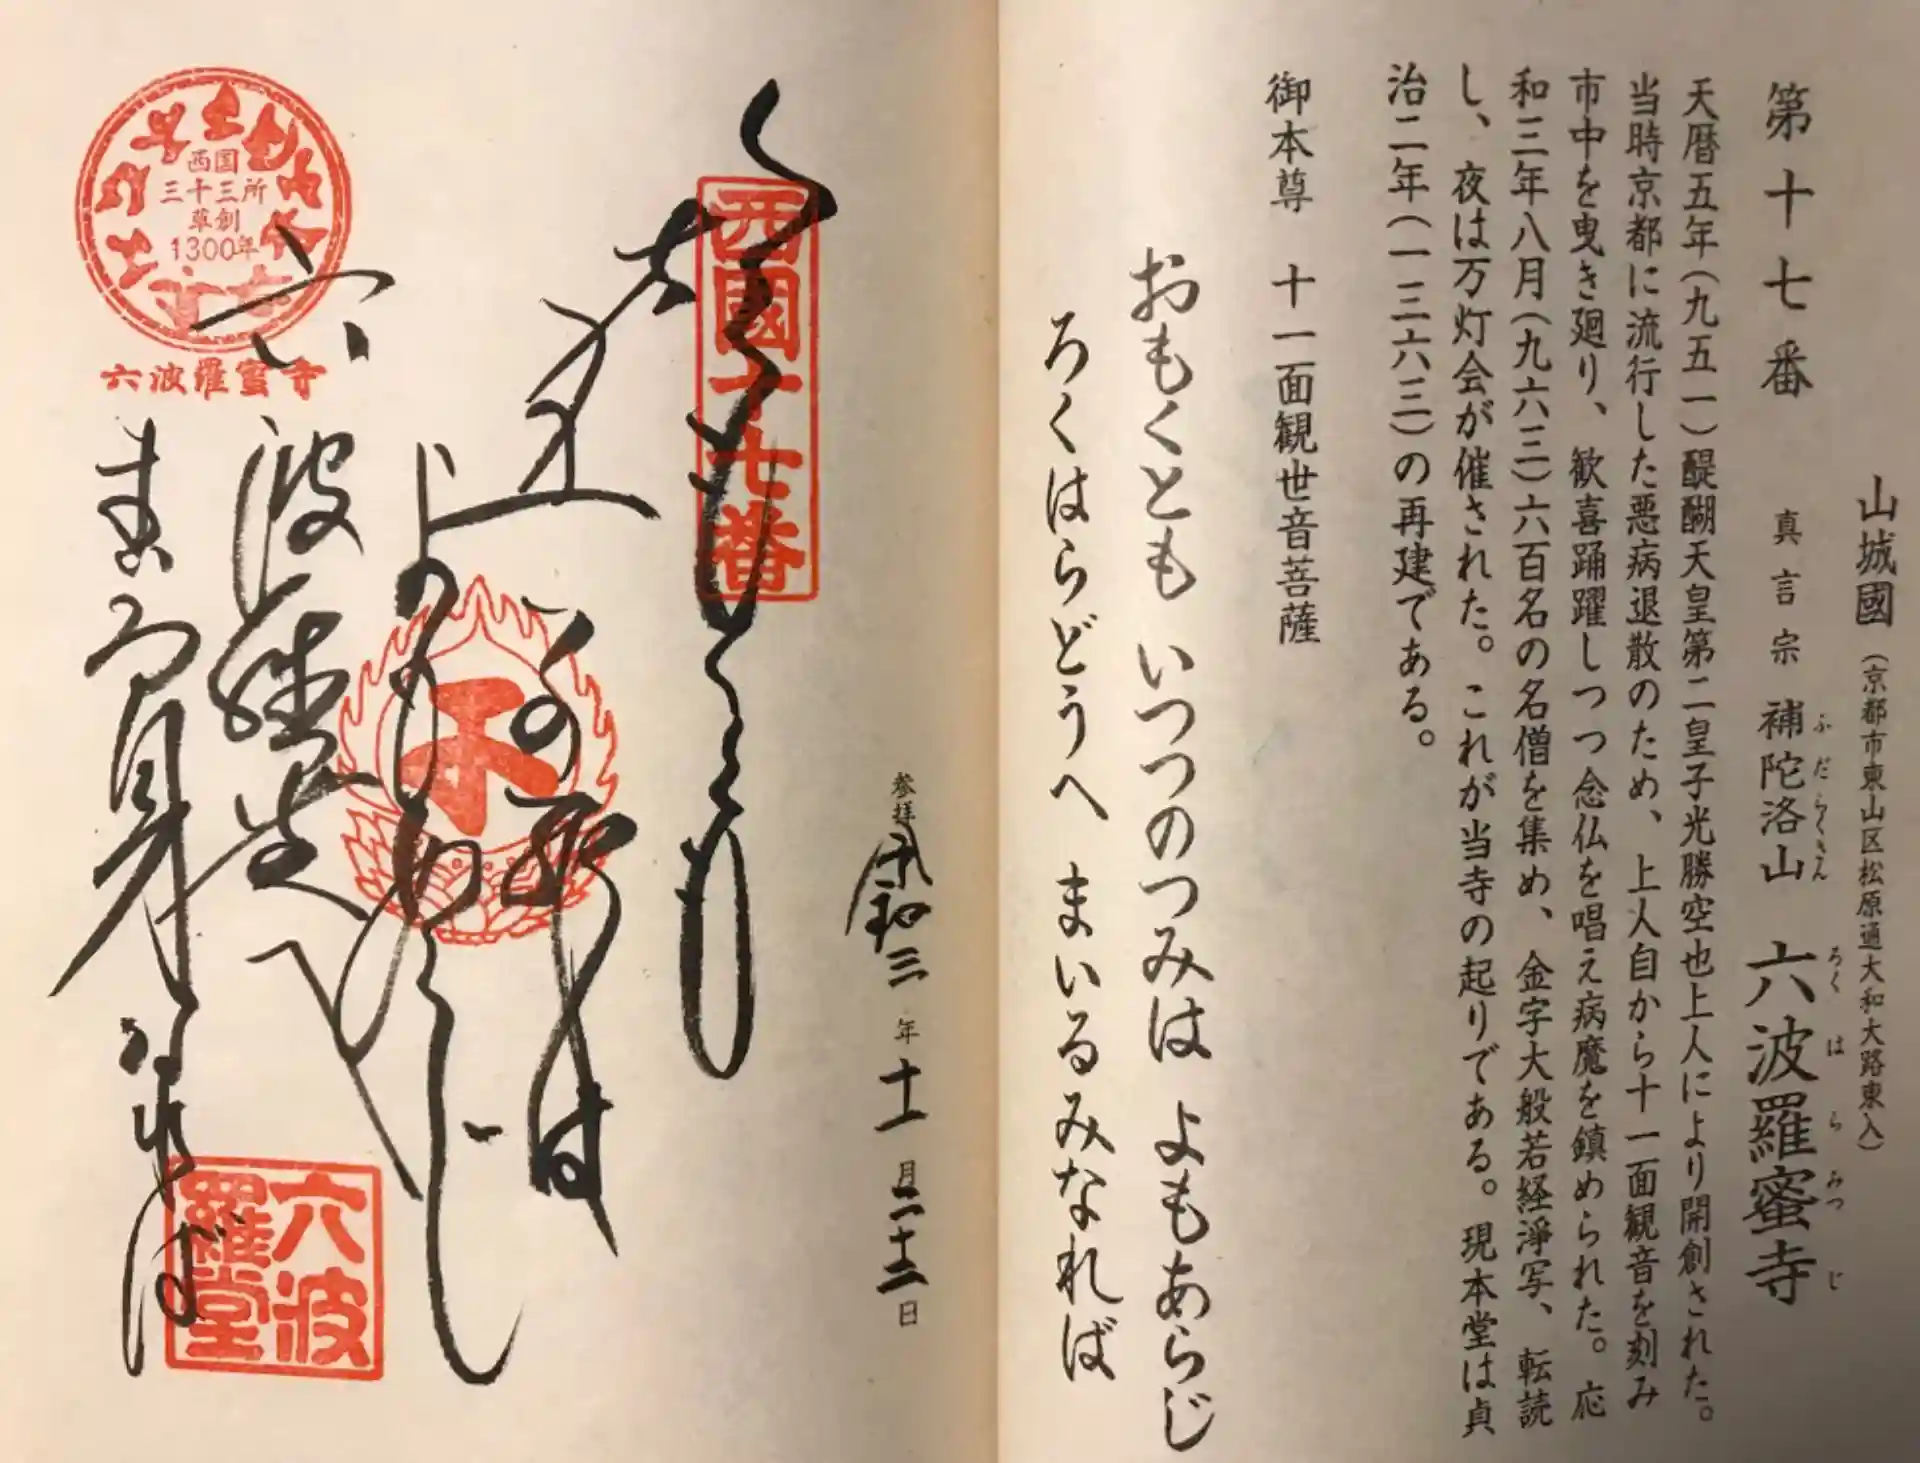 山城國（京都市東山区松原通大和大路東入）
第十七番　真言宗　補陀洛山　六波羅蜜寺
ふだらくさん　ろくはらみつじ
天暦五年（九五一）醍醐天皇第二皇子光勝空也上人により開創された。
当時京都に流行した悪病退散のため、上人自から十一面観音を刻み
市中を曳き廻り、歓喜踊躍しつつ念仏を唱え病魔を鎮められた。応
和三年八月（九六三）六百名の名僧を集め、金字大般若経浄写、転読
し、夜は万灯会が催された。これが当寺の起りである。現本堂は貞
治二年（一三六三）の再建である。
御本尊　十一面観世音菩薩
おもくとも いつつのつみは よもあらじ
ろくはらどうへ まいるみなれば
参拝 令和三年十一月二十二日
西國十七番
西国
三十三所
草創
1300年
六波羅蜜寺
六波
羅堂